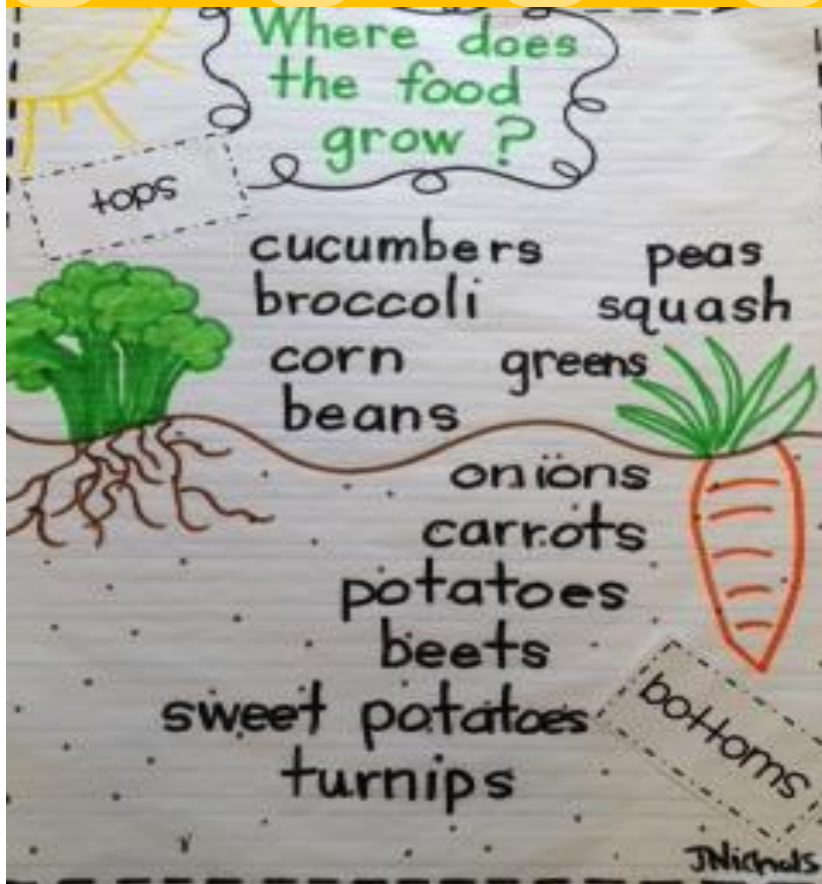 Where does
the food
grow ?
tops
cucumbers peas
broccoli squash
corn greens
beans
onions
carrots
potatoes
beets
sweet potatoes
turnips
bottoms
JNichols